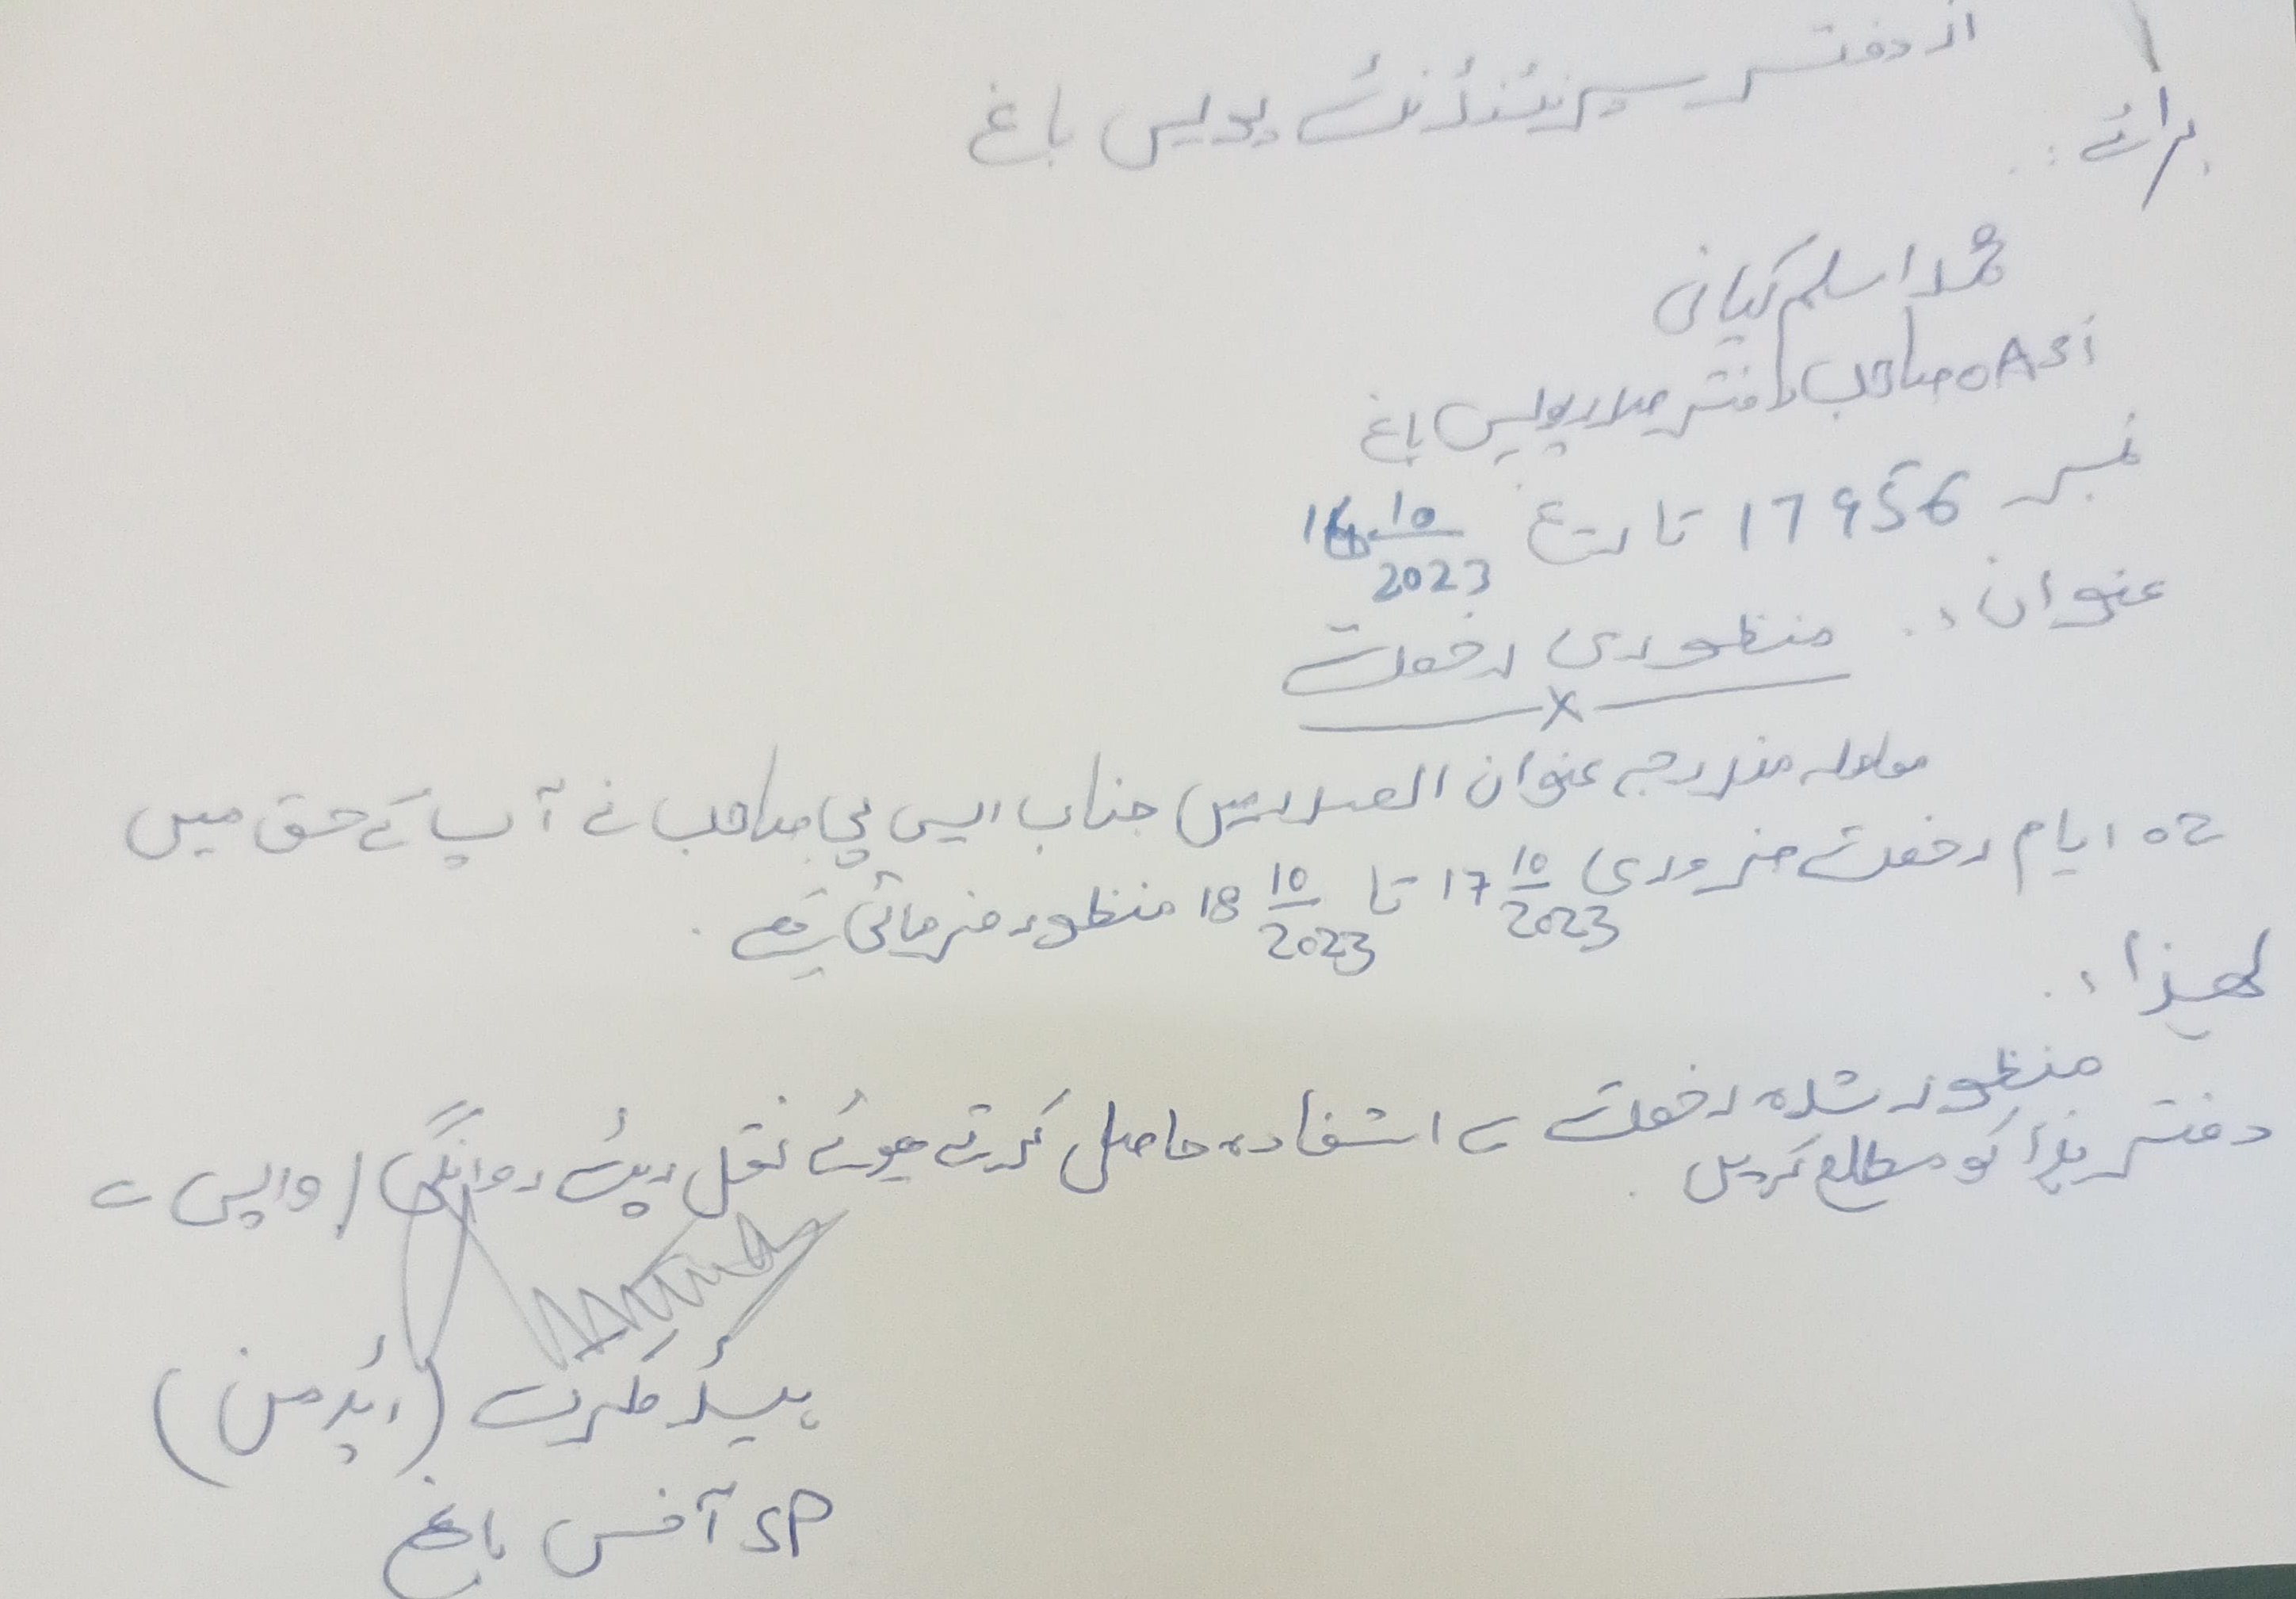 از دفتر سپرنٹنڈنٹ پولیس باغ
برائے :
محمد اسلم کیانی
ASI صاحب دفتر صدر پولیس باغ
نمبر 17956 تاریخ 16 10/2023
عنوان :. منظوری رخصت
معاملہ مندرجہ عنوان الصدر میں جناب ایس پی صاحب نے آپ کے حق میں
02 ایام رخصت ضروری 17 10/2023 تا 18 10/2023 منظور فرمائی ہے ۔
لھذا :.
منظور شدہ رخصت سے استفادہ حاصل کرتے ہوئے نقل رپٹ روانگی / واپسی سے
دفتر ہذا کو مطلع کریں ۔
ہیڈ کلرک (ایڈمن)
SP آفس باغ